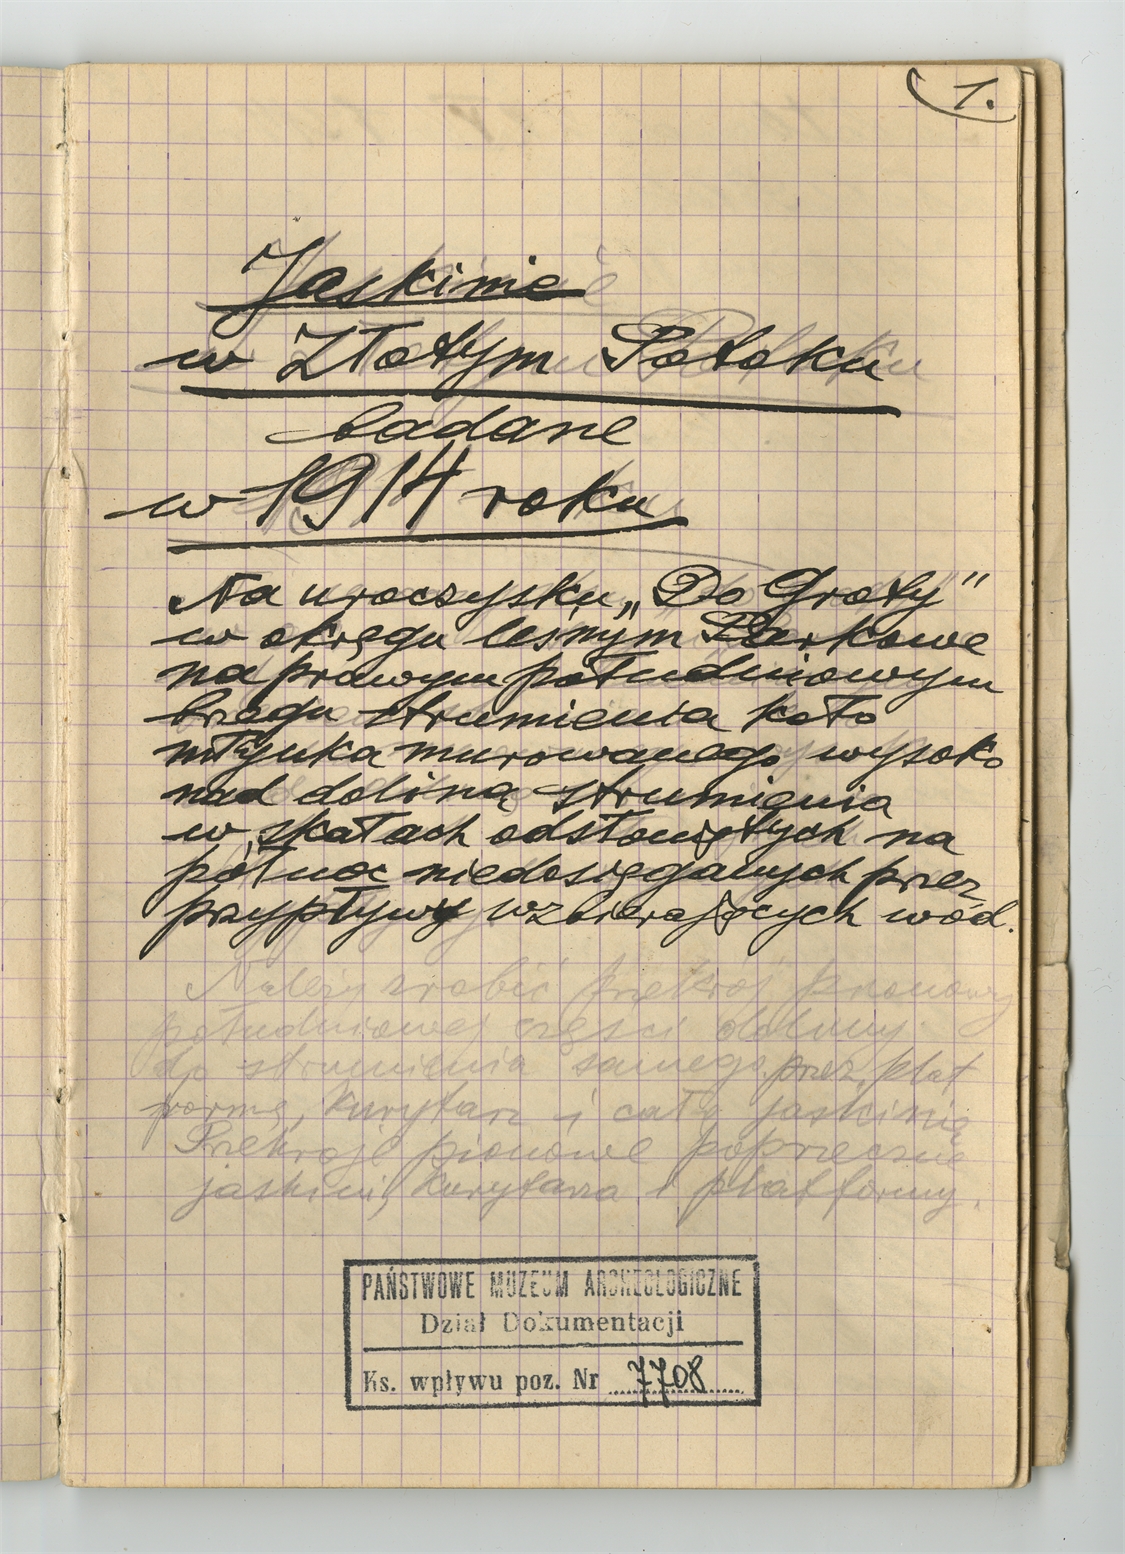 1.
Jaskinie
w Złotym Potoku
badane
w 1914 roku
Na uroczysku „Do Groty"
w okręgu leśnym Parkowe
na prawym południowym
brzegu strumienia koło
młynka murowanego wysoko
nad doliną strumienia
w skałach odsłoniętych na
północ niedosięganych przez
przypływy wzbierających wód.
Należy zrobić przekrój pionowy
południowej części doliny
do strumienia samego przez plat
formę, kurytarz i całą jaskinię
Przekroje pionowe poprzeczne
jaskini, kurytarza i platformy.
PAŃSTWOWE MUZEUM ARCHEOLOGICZNE
Dział Dokumentacji
Ks. wpływu poz. Nr 7708